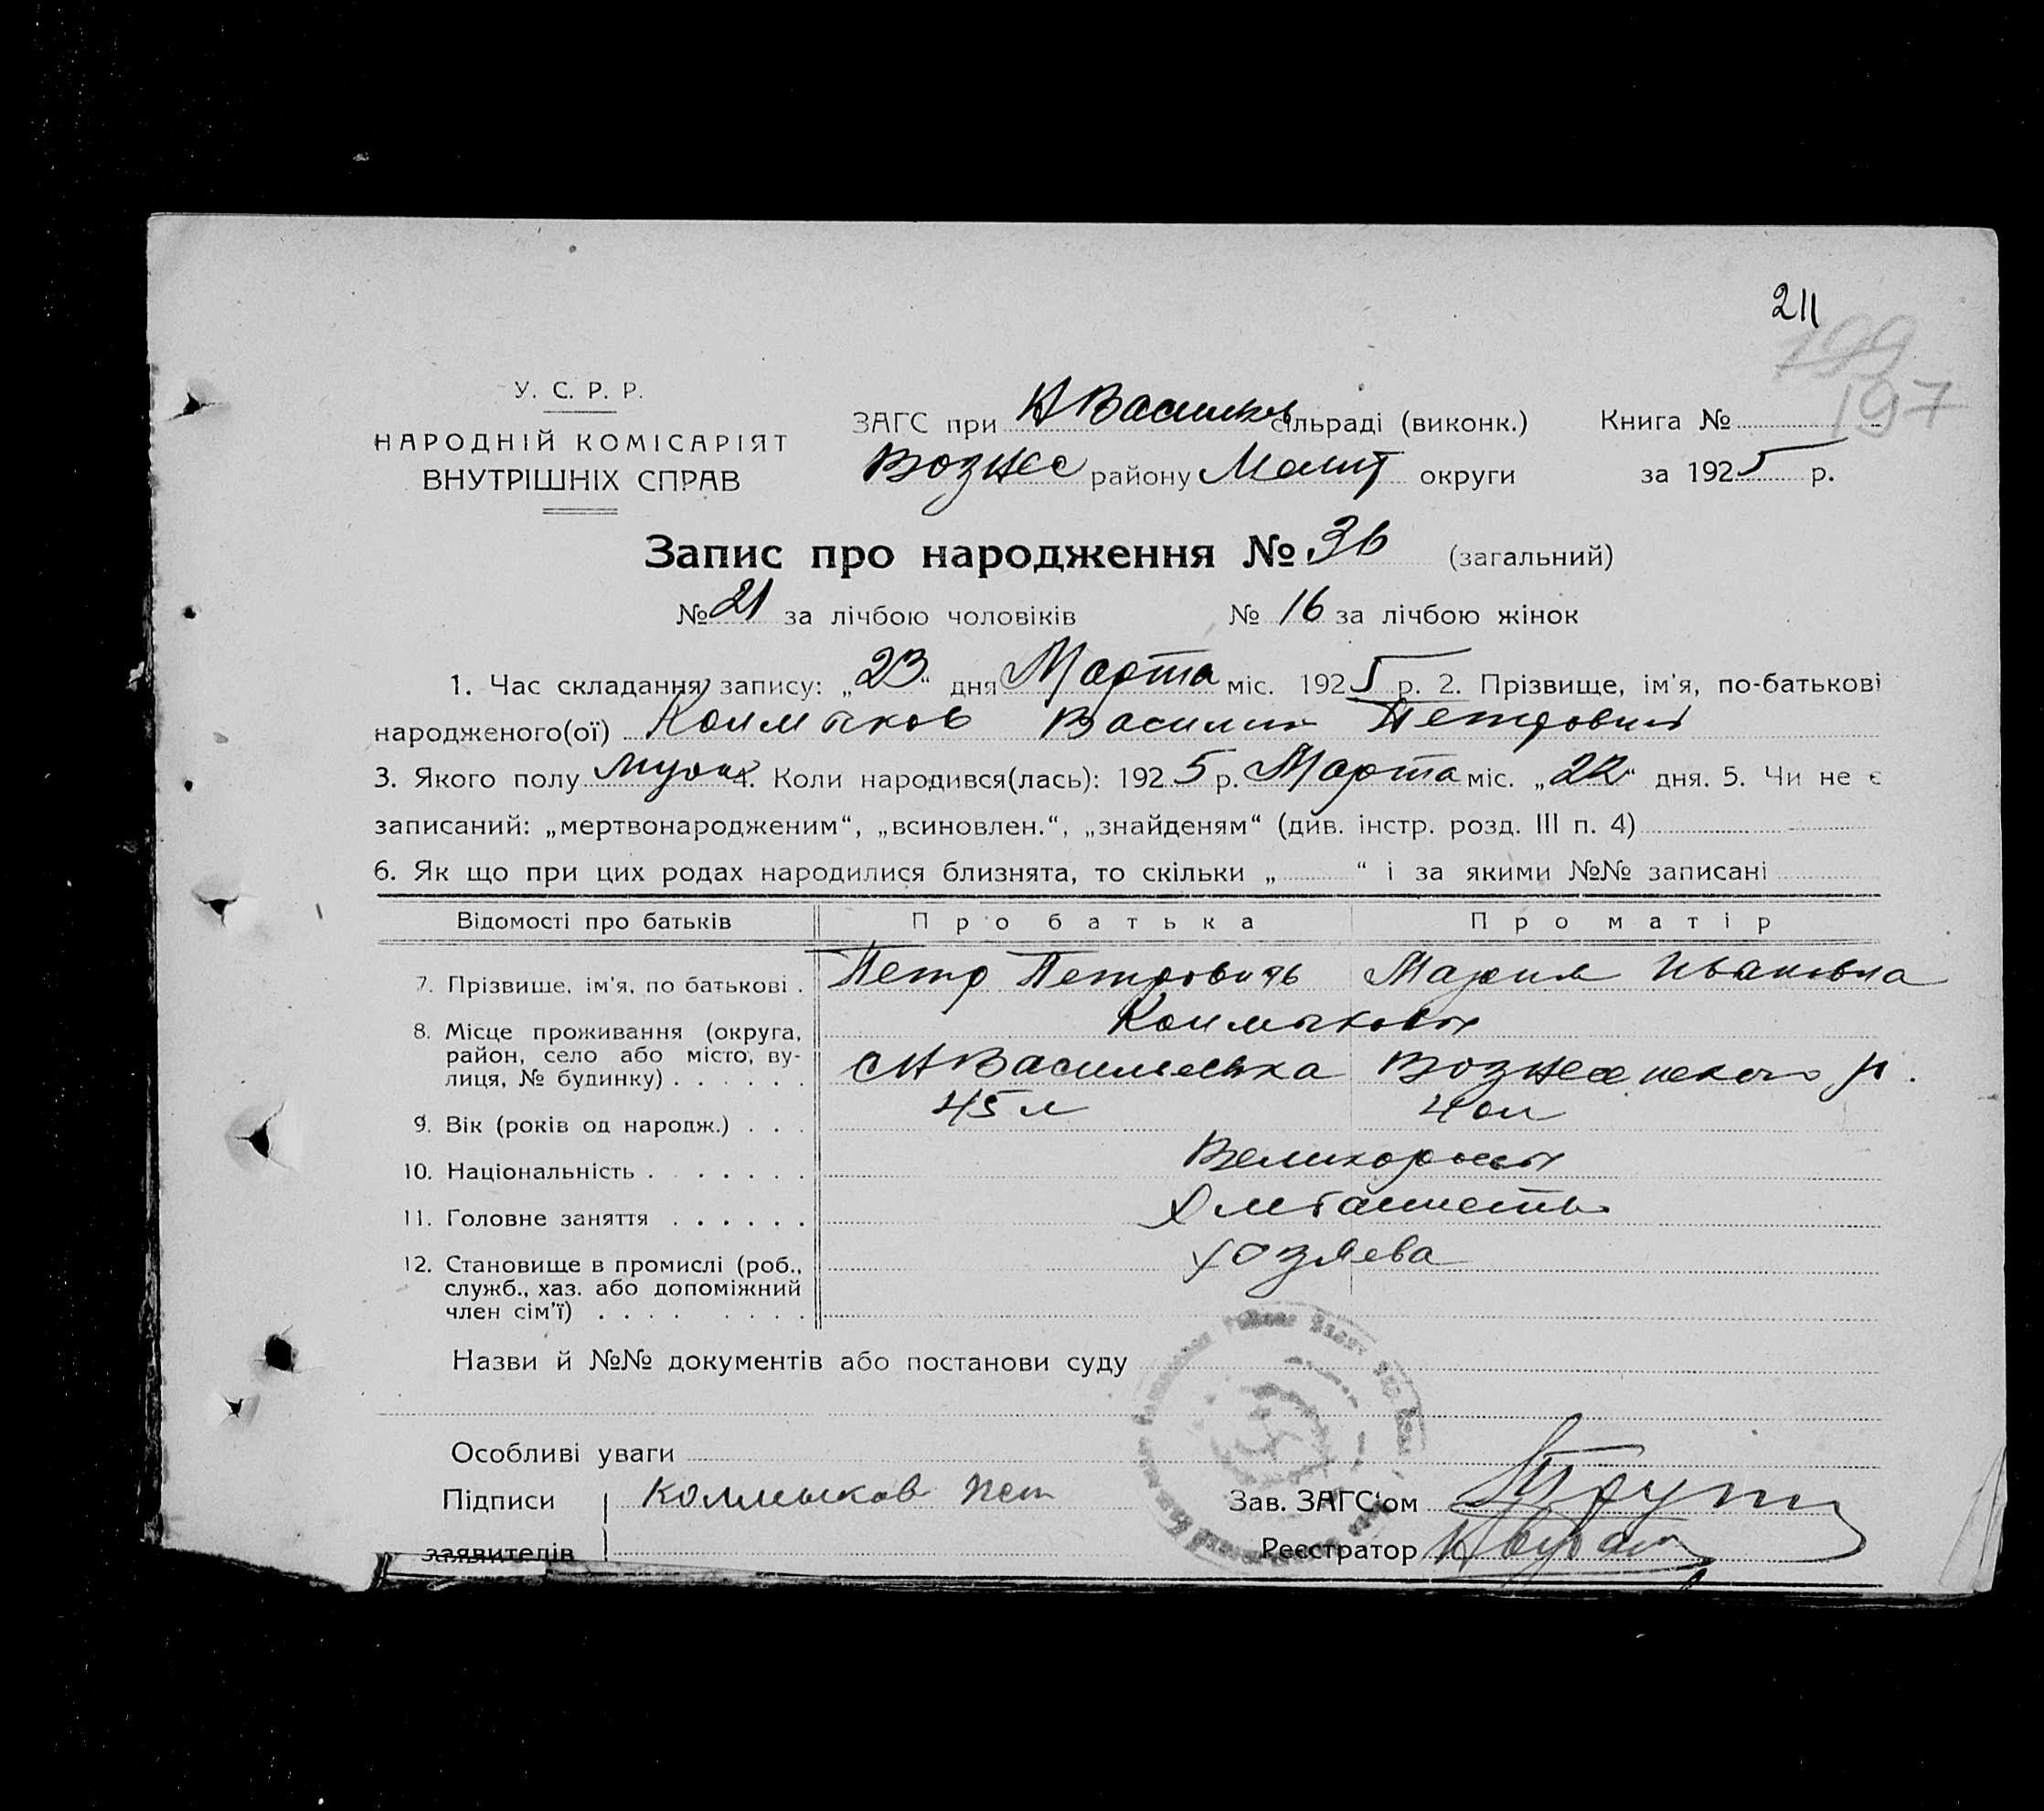 211
199
197
У. С. Р. Р.
НАРОДНІЙ КОМІСАРІЯТ
ВНУТРІШНІХ СПРАВ
ЗАГС при Н Васильев сільраді (виконк.) Книга №
Вознес району Мелит округи за 1925 р.
Запис про народження № 36 (загальний)
№ 21 за лічбою чоловіків № 16 за лічбою жінок
1. Час складання запису: „23“ дня Марта міс. 1925 р. 2. Прізвище, ім'я, по-батькові
народженого(ої) Колмыков Василий Петрович
3. Якого полу мужс 4. Коли народився(лась): 1925 р. Марта міс. „22“ дня. 5. Чи не є
записаний: „мертвонародженим“, „всиновлен.“, „знайденям“ (див. інстр. розд. III п. 4)
6. Як що при цих родах народилися близнята, то скільки „ “ і за якими №№ записані
Відомості про батьків Про батька Про матір
7. Прізвише, ім'я, по батькові . Петр Петровичь Мария Ивановна
Колмыковы
8. Місце проживання (округа,
район, село або місто, ву-
лиця, № будинку) . . . . . . с Н Васильевка Вознесенского р.
9. Вік (років од народж.) . . . 45 л 40 л
10. Національність . . . . . . . Великороссы
11. Головне заняття . . . . . . Хлебопашеств
12. Становище в промислі (роб., хозяева
служб., хаз. або допоміжний
член сім'ї) . . . . . . . .
Назви й №№ документів або постанови суду
Особливі уваги
Підписи Колмыков Пет Зав. ЗАГС'ом
заявителів Реєстратор